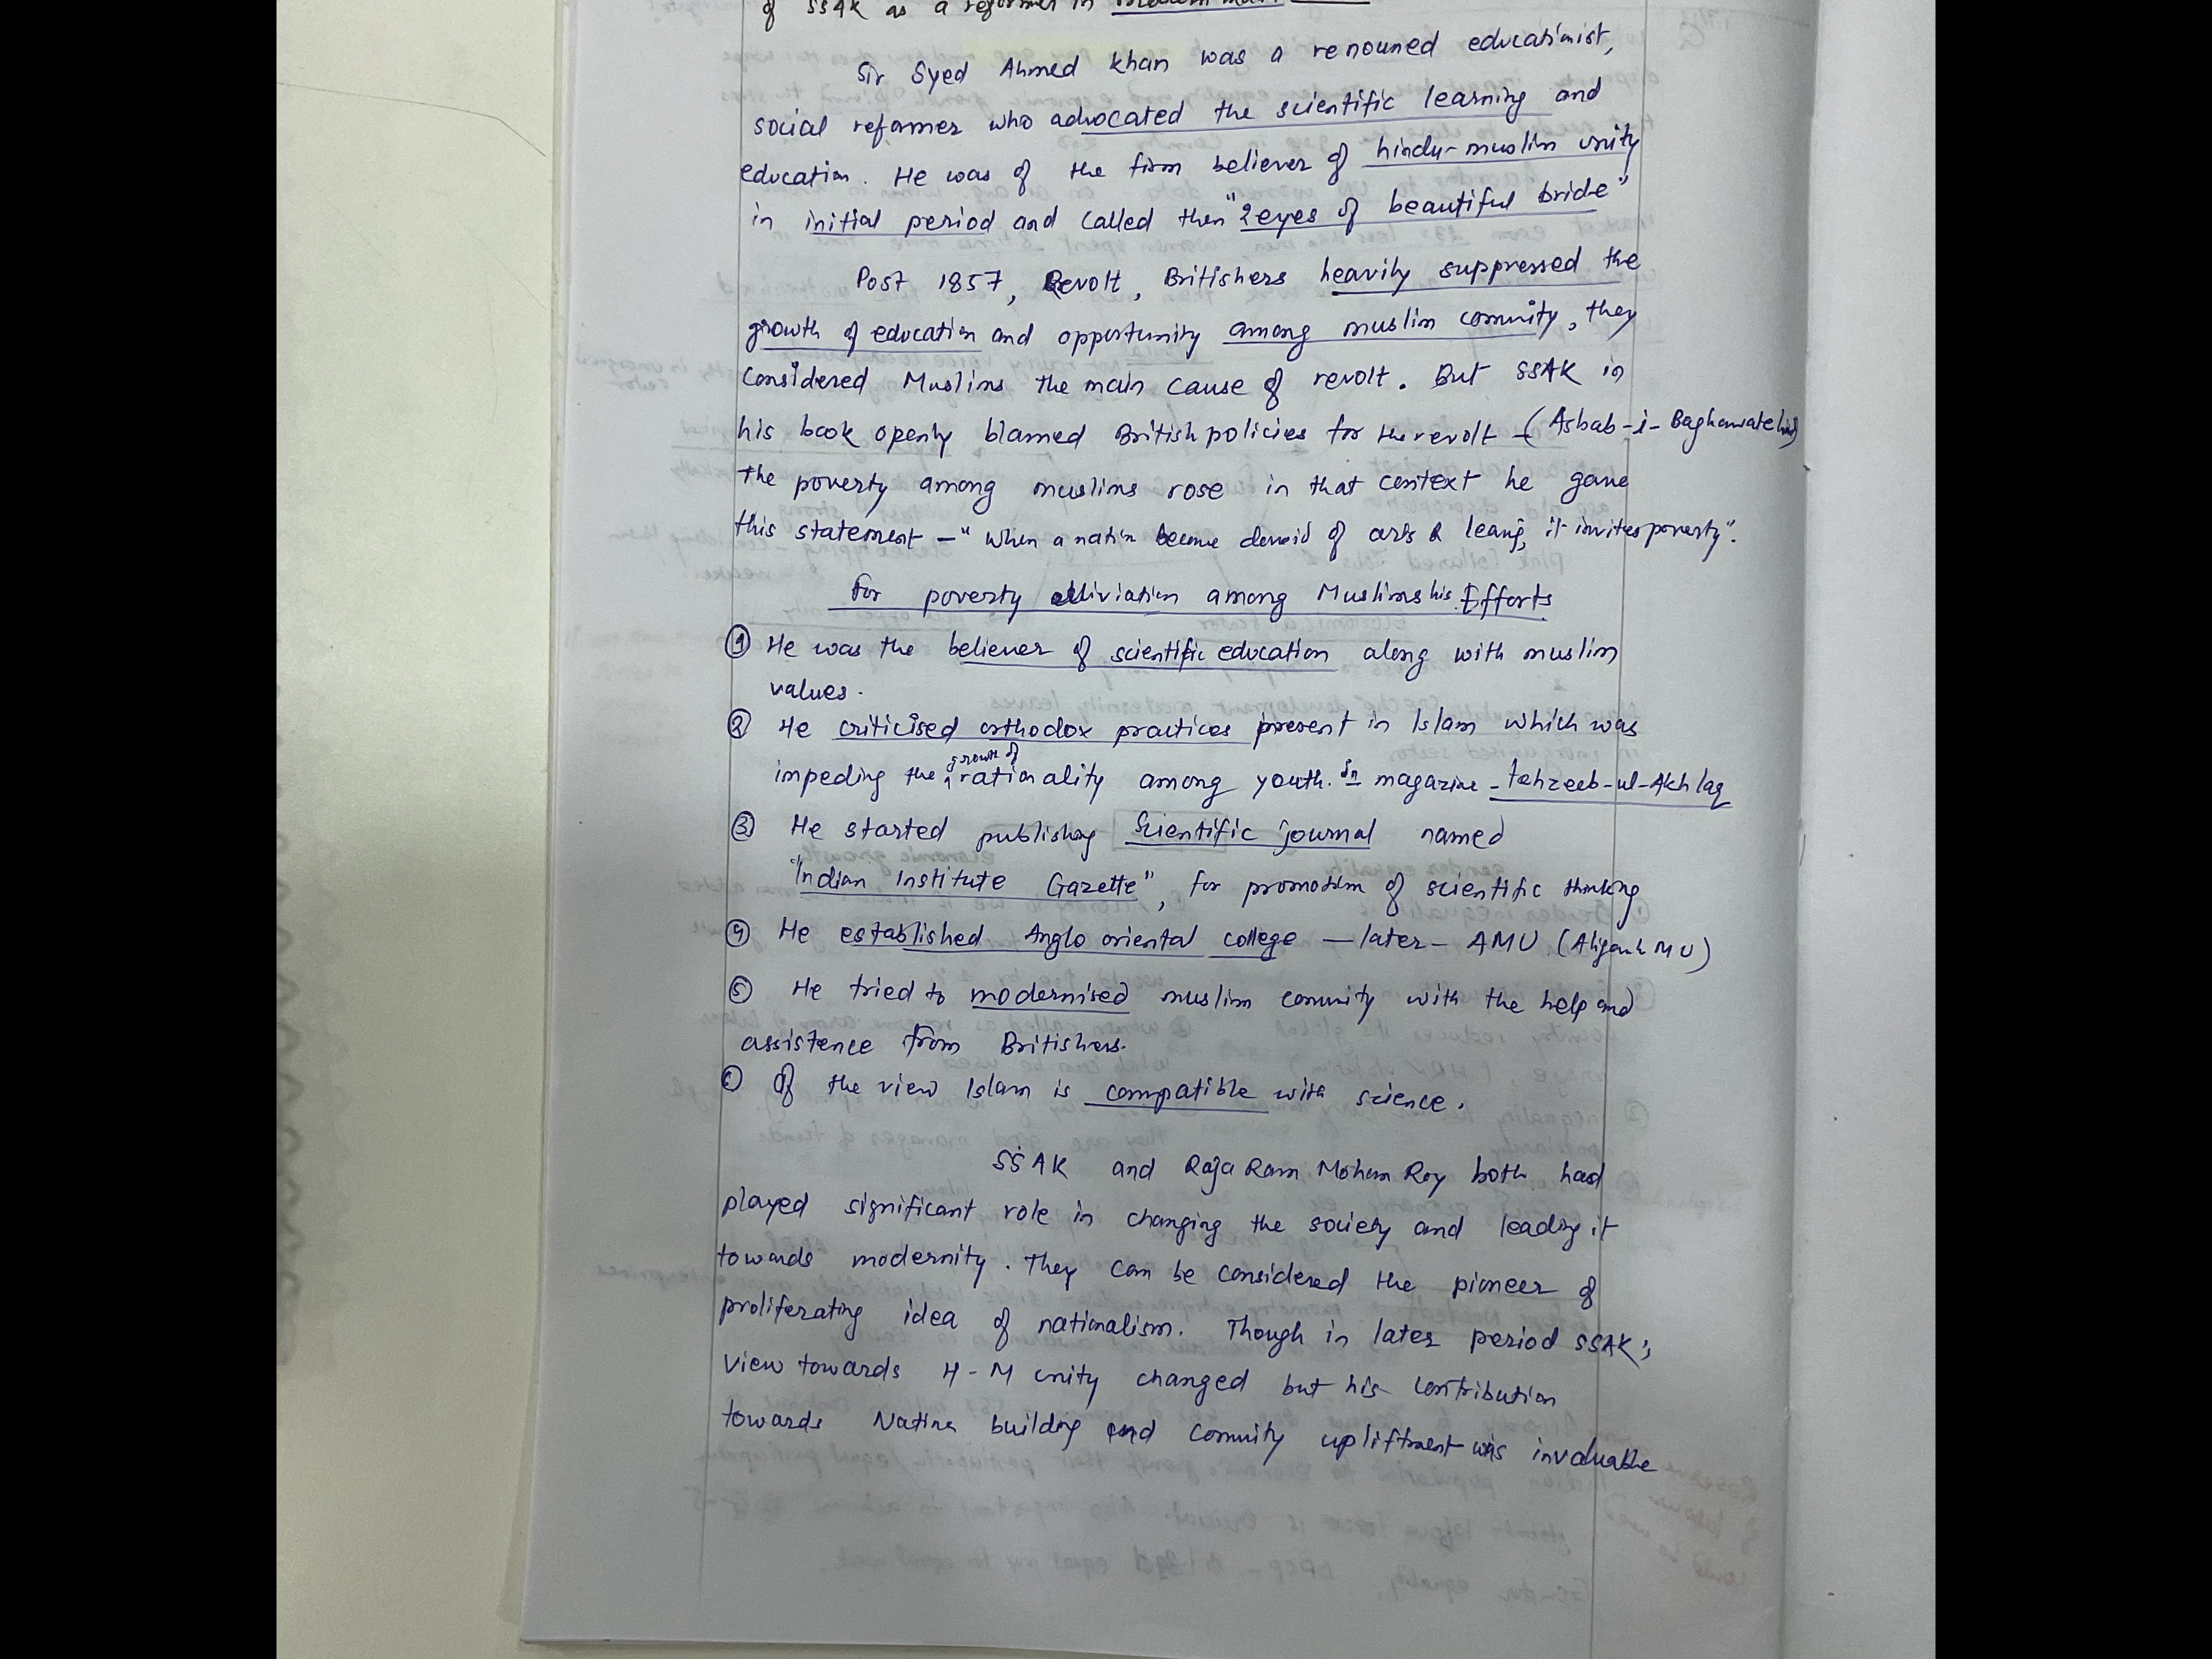 of SSAK as a reformer in
Sir Syed Ahmed khan was a renouned educationist,
social reformer who advocated the scientific learning and
education. He was of the firm believer of hindu-muslim unity
in initial period and called then "2 eyes of beautiful bride"
Post 1857, Revolt, Britishers heavily suppressed the
growth of education and opportunity among muslim comunity, they
considered Muslims the main cause of revolt. But SSAK in
his book openly blamed British policies for the revolt - (Asbab-i-Baghawate hind)
The poverty among muslims rose in that context he gave
this statement - "when a nation become devoid of arts & learing, it invites poverty".
For poverty alliviation among Muslims his Efforts
① He was the believer of scientific education along with muslim
values.
② He criticised orthodox practices present in Islam which was
impeding the growth of rationality among youth. In magazine - Tehzeeb-ul-Akhlaq
③ He started publishing Scientific journal named
"Indian Institute Gazette", for promotion of scientific thinking
④ He established Anglo oriental college - later - AMU (Aligarh MU)
⑤ He tried to modernised muslim comunity with the help and
assistence from Britishers.
⑥ Of the view Islam is compatible with science.
SSAK and Raja Ram Mohan Roy both had
played significant role in changing the society and leading it
towards modernity. They can be considered the pioneer of
proliferating idea of nationalism. Though in later period SSAK's
view towards H-M unity changed but his contribution
towards Nation building and comunity upliftment was invaluable